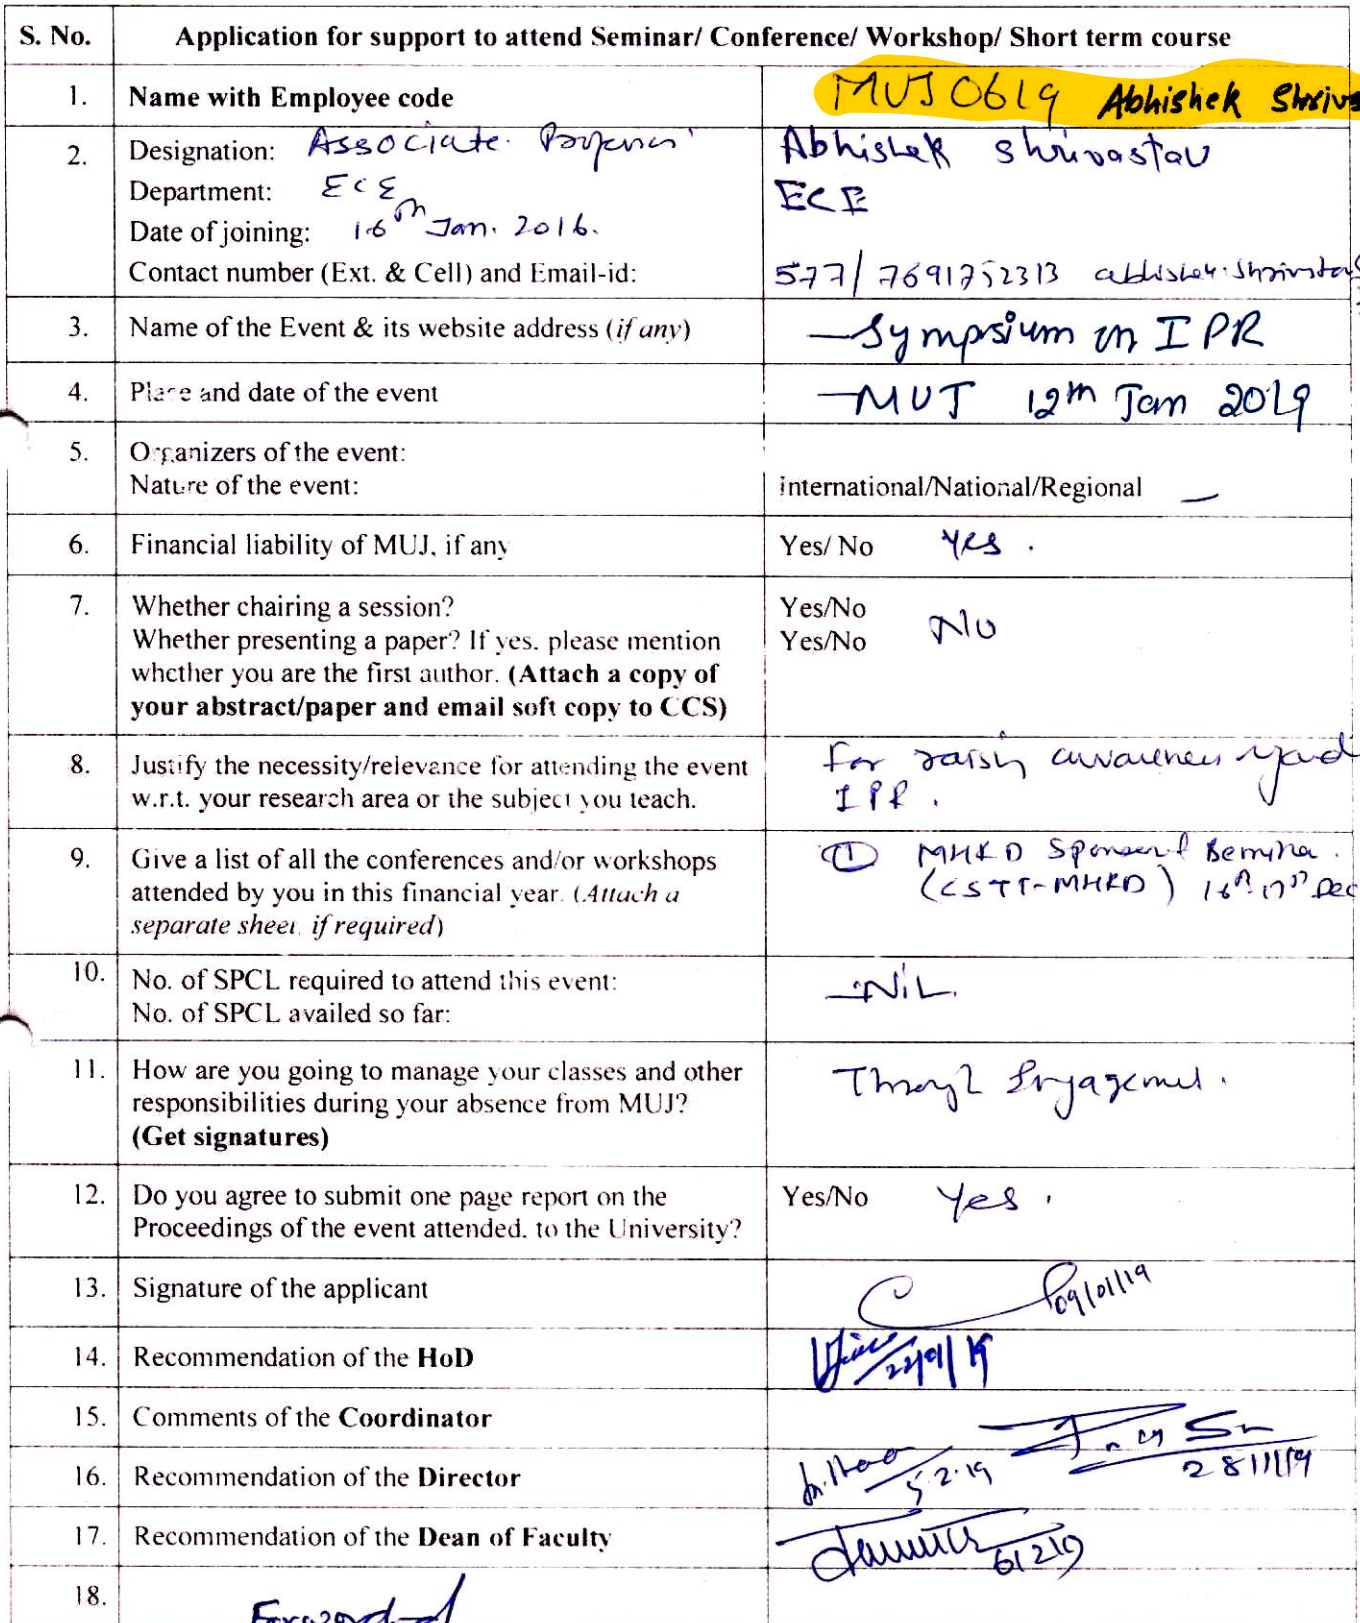 S. No. Application for support to attend Seminar/ Conference/ Workshop/ Short term course
1. Name with Employee code MUJ0619 Abhishek Shrivas
2. Designation: Associate Abhishek Shrivastav
Department: ECE ECE
Date of joining: 16th Jan. 2016.
Contact number (Ext. & Cell) and Email-id: 577/ 7691752313
3. Name of the Event & its website address (if any) Sympsium on IPR
4. Place and date of the event MUJ 12th Jan 2019
5. Organizers of the event:
Nature of the event: International/National/Regional —
6. Financial liability of MUJ, if any Yes/ No Yes.
7. Whether chairing a session? Yes/No
Whether presenting a paper? If yes, please mention Yes/No No
whether you are the first author. (Attach a copy of
your abstract/paper and email soft copy to CCS)
8. Justify the necessity/relevance for attending the event For
w.r.t. your research area or the subject you teach. IPR.
9. Give a list of all the conferences and/or workshops ① MHRD
attended by you in this financial year. (Attach a (CSTT-MHRD) Dec
separate sheet, if required)
10. No. of SPCL required to attend this event: NiL.
No. of SPCL availed so far:
11. How are you going to manage your classes and other
responsibilities during your absence from MUJ?
(Get signatures)
12. Do you agree to submit one page report on the Yes/No Yes.
Proceedings of the event attended, to the University?
13. Signature of the applicant 09/01/19
14. Recommendation of the HoD
15. Comments of the Coordinator
16. Recommendation of the Director 5.2.19
17. Recommendation of the Dean of Faculty 6/2/19
18.